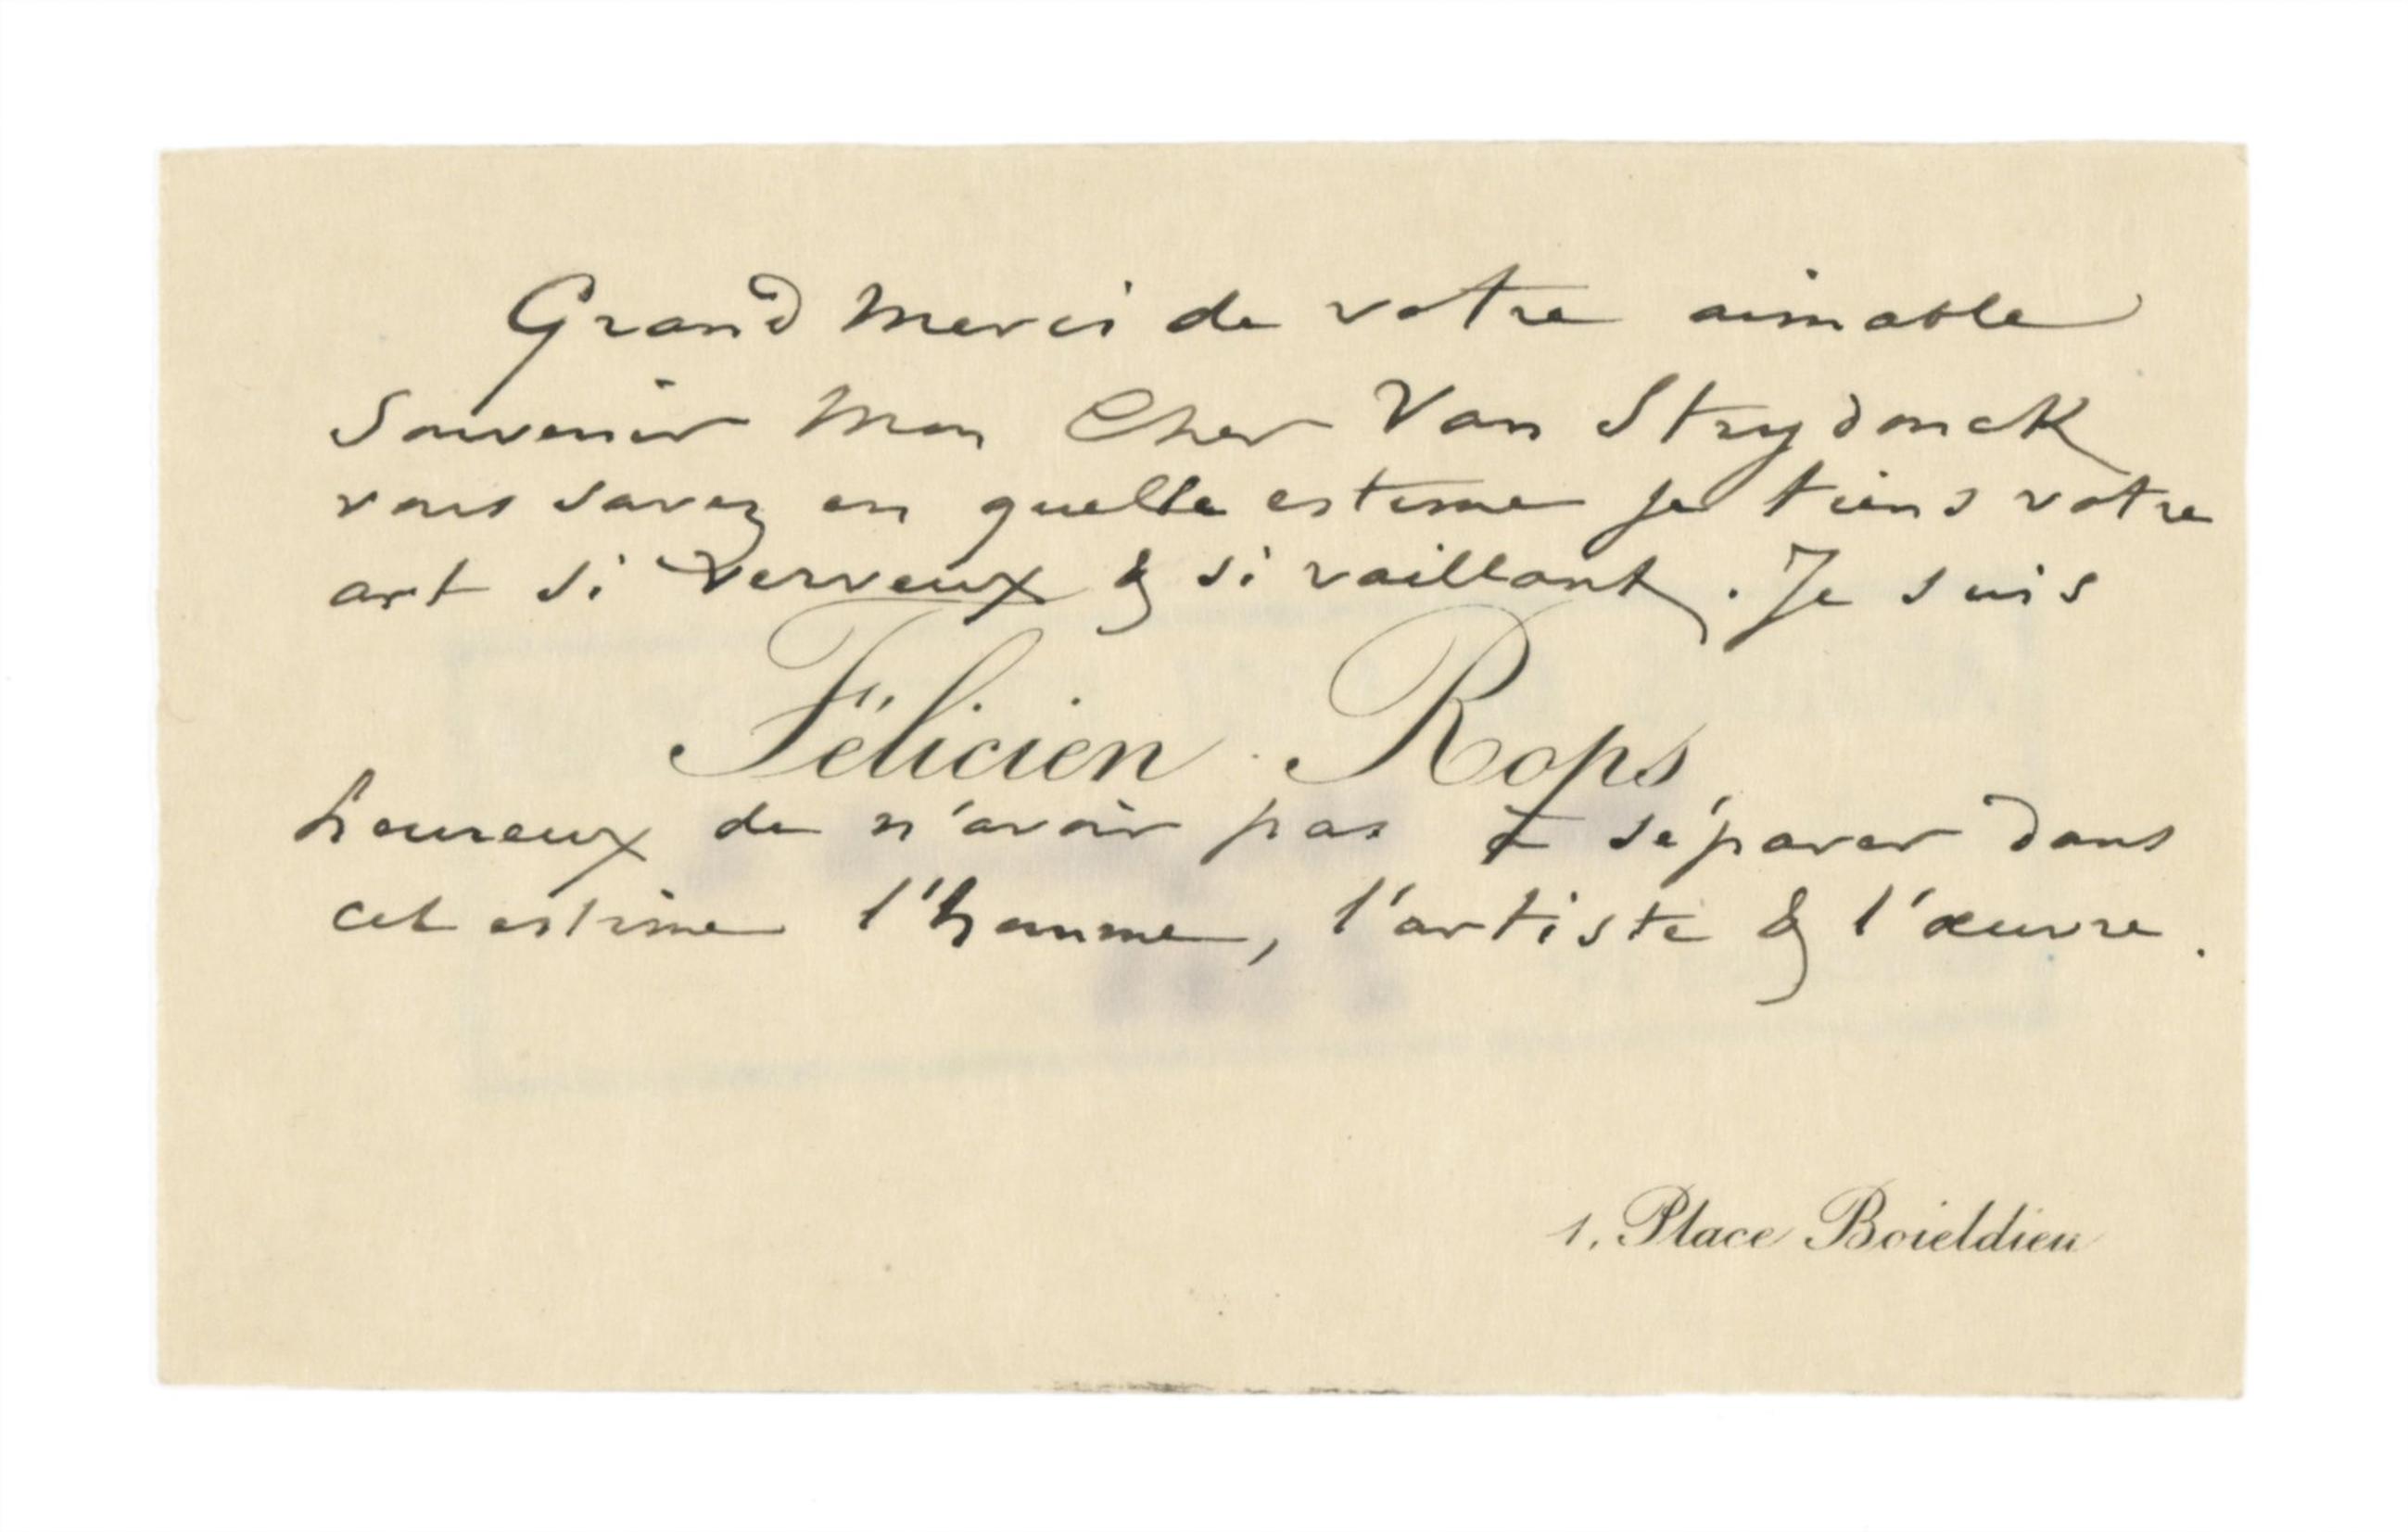 Grand Merci de votre aimable
Souvenir Mon Cher Van Strydonck
vous savez en quelle estime je tiens votre
art si verveux & si vaillant. Je suis
Félicien Rops
heureux de n'avoir pas à séparer dans
cet estime l'homme, l'artiste & l'œuvre.
1, Place Boieldieu